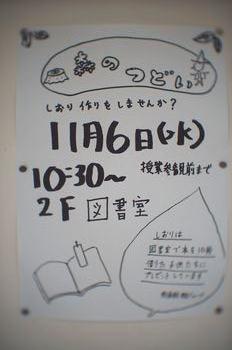 森のつどい
しおり作りをしませんか？
11月6日(水)
10:30〜 授業参観前まで
2F 図書室
しおりは
図書室で本を10冊
借りた子供たちに
プレゼントしています